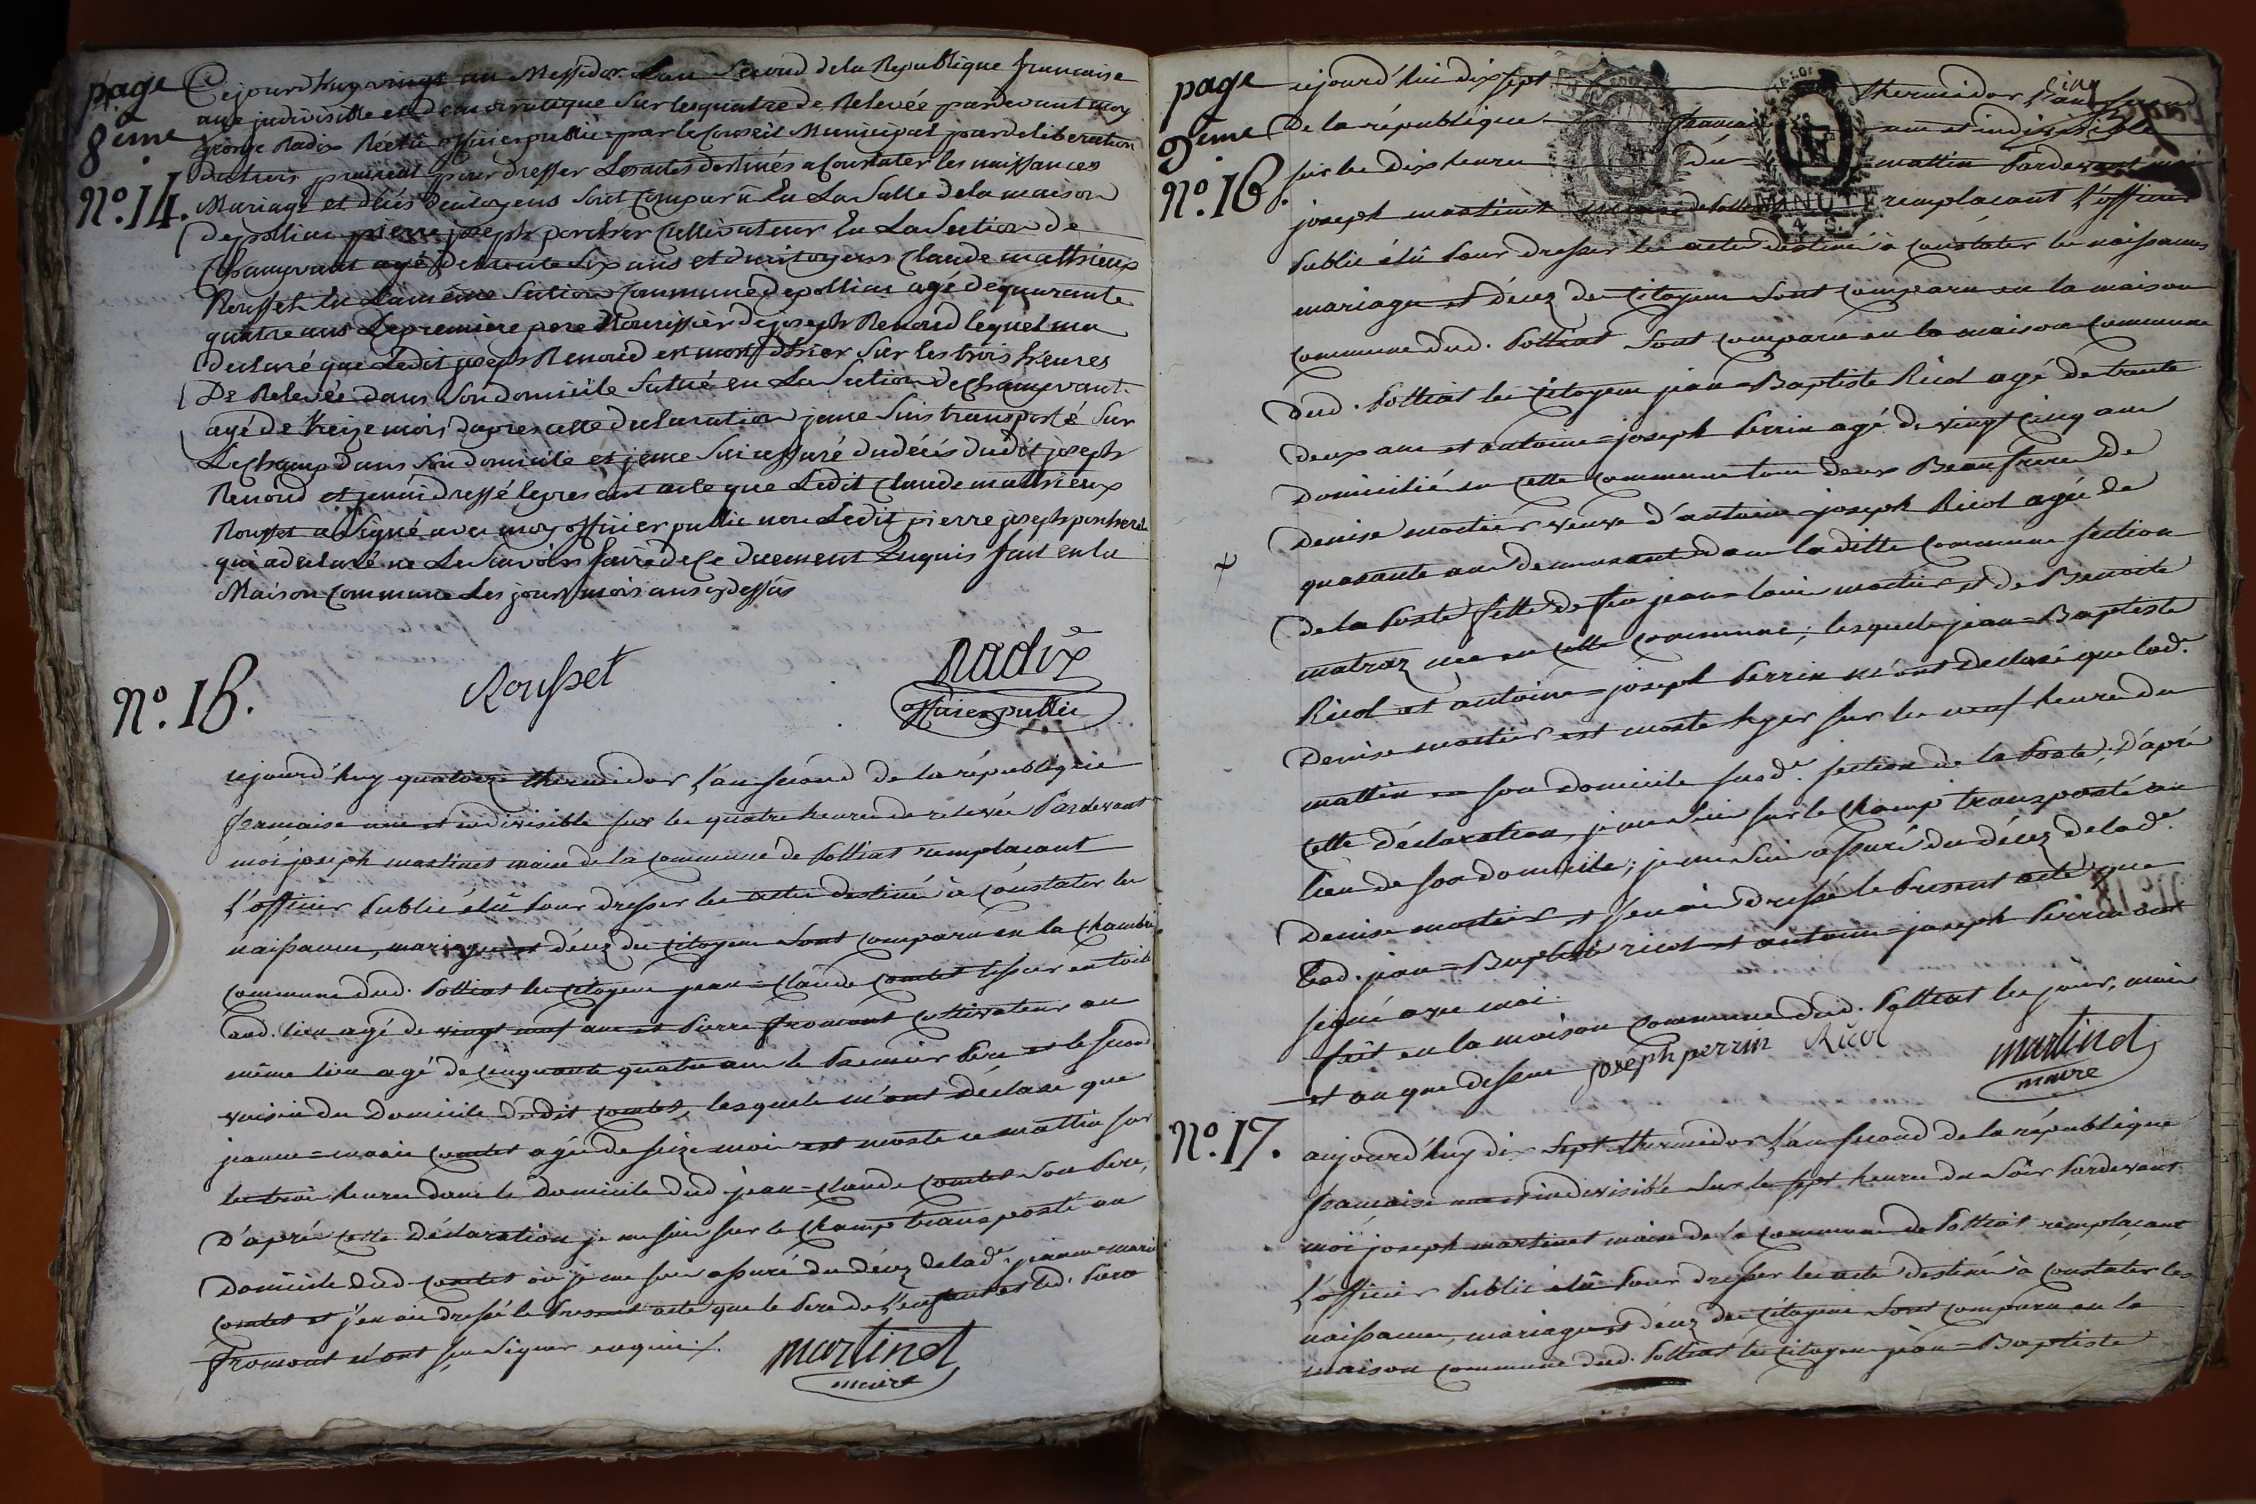 page
8ème
N°. 14.
Cejourdhuy vingt un Messidor Lan Second dela Republique francaise
une judivisible et democratique Sur lesquatre de Relevée pardevant moy
George Radix Réélû officier public par le Conseil Municipal par deliberation
pour dresser Lesactes destinés a Constater les naissances
Mariage et décés Decitoyens Sont Comparû En La Salle dela maison
depolliat pierre joseph poncher Cultivateur En La Section de
Champvant agé detrente Six ans et ducitoyens Claude matthieux
Rousset En Lamême Section Commune depolliat agé dequarante
quatre ans Lepremiere pere Nourissier dejoseph Renoud lequel ma
Declaré que Ledit joseph Renoud est mort Ehier Sur les trois heures
De Relevée dans Son domicile Situé en La Section de Champvant
agé de treize mois dapres cette declaration jeme Suis transporté Sur
Lechamp dans Son domicile et jeme Sui assuré dudécés dudit joseph
Renoud et jenai dressé lepresent acte que Ledit Claude matthieux
Rousset a Signé avec moy officier public non Ledit pierre joseph poncher
qui adeclaré ne Le Savoir faire dece duement Enquis fait en la
Maison Commune Les jours mois ans cydessus
Rousset
Radix
officier public
N°. 15.
cejourd'huy quatorze thermidor l'an second de la république
francaise une et indivisible sur les quatre heures de relevée Pardevant
moi joseph martinet maire de la commune de Polliat remplacant
l'officier Public élû Pour dresser les actes destiné à constater les
naissances, mariages et décez des citoyens sont comparu en la chambre
commune dud. Polliat les citoyens jean=claude comtet tissier en toile
aud. lieu agé de vingt neuf ans et Pierre fromont cultivateur au
même lieu agé de cinquante quatre ans le Premier Pere et le second
voisin du Domicile dudit comtet, lesquels m'ont déclaré que
jeanne=marie comtet agée de seize mois est morte ce mattin sur
les trois heures dans le Domicile dud jean=claude comtet son Pere,
D'après cette déclaration je me suis sur le champ transporté au
Domicile dud comtet où je me suis assuré du décez de lad.e jeanne marie
comtet et j'en ai dressé le Present acte que le Pere de l'enfant et led. Pierre
fromont n'ont su signer enquis /.
martinet
maire
page
9ème
N°. 16.
cejourd'hui dix sept thermidor l'an cinq
De la république française une et indivisible
sur les dix heures du mattin Pardevant moi
joseph martinet maire de Polliat remplacant l'officier
Public élû Pour dresser les actes destiné à constater les naissances
mariages et décez des citoyens sont comparu en la maison
commune dud. Polliat sont comparu en la maison commune
dud. Polliat les citoyens jean=Baptiste Ricol agé de trente
deux ans et antoine=joseph Perrin agé de vingt cinq ans
Domicilié en cette commune tous deux Beaufrere de
Denise mortier veuve d'antoine joseph Ricol agée de
quarante ans demeurant dans laditte commune section
de la Poste fille de feu jean=louis mortier et de Benoite
matraz née en cette commune; lesquels jean=Baptiste
Ricol et antoine=joseph Perrin m'ont déclaré que lad.e
Denise mortier est morte hyer sur les neuf heures du
mattin en son Domicile susd.e section de la Poste; D'après
cette déclaration, je me suis sur le champ transporté au
lieu de son domicile; je me suis assuré du décez de lad.e
Denise mortier et j'en ai dressé le Present acte que
led. jean=Baptiste ricol et antoine=joseph Perrin ont
signé avec moi.
fait en la maison commune dud. Polliat les jour, mois
et an que dessus joseph perrin Ricol
martinet
maire
N°. 17.
aujourd'huy dix sept thermidor l'an second de la république
francaise une et indivisible sur les sept heures du soir Pardevant
moi joseph martinet maire de la commune de Polliat remplaçant
l'officier Public élû Pour dresser les acte destiné à constater les
naissances, mariages et décez des citoyens sont comparu en la
maison commune dud. Polliat les citoyens jean=Baptiste
MINUTE